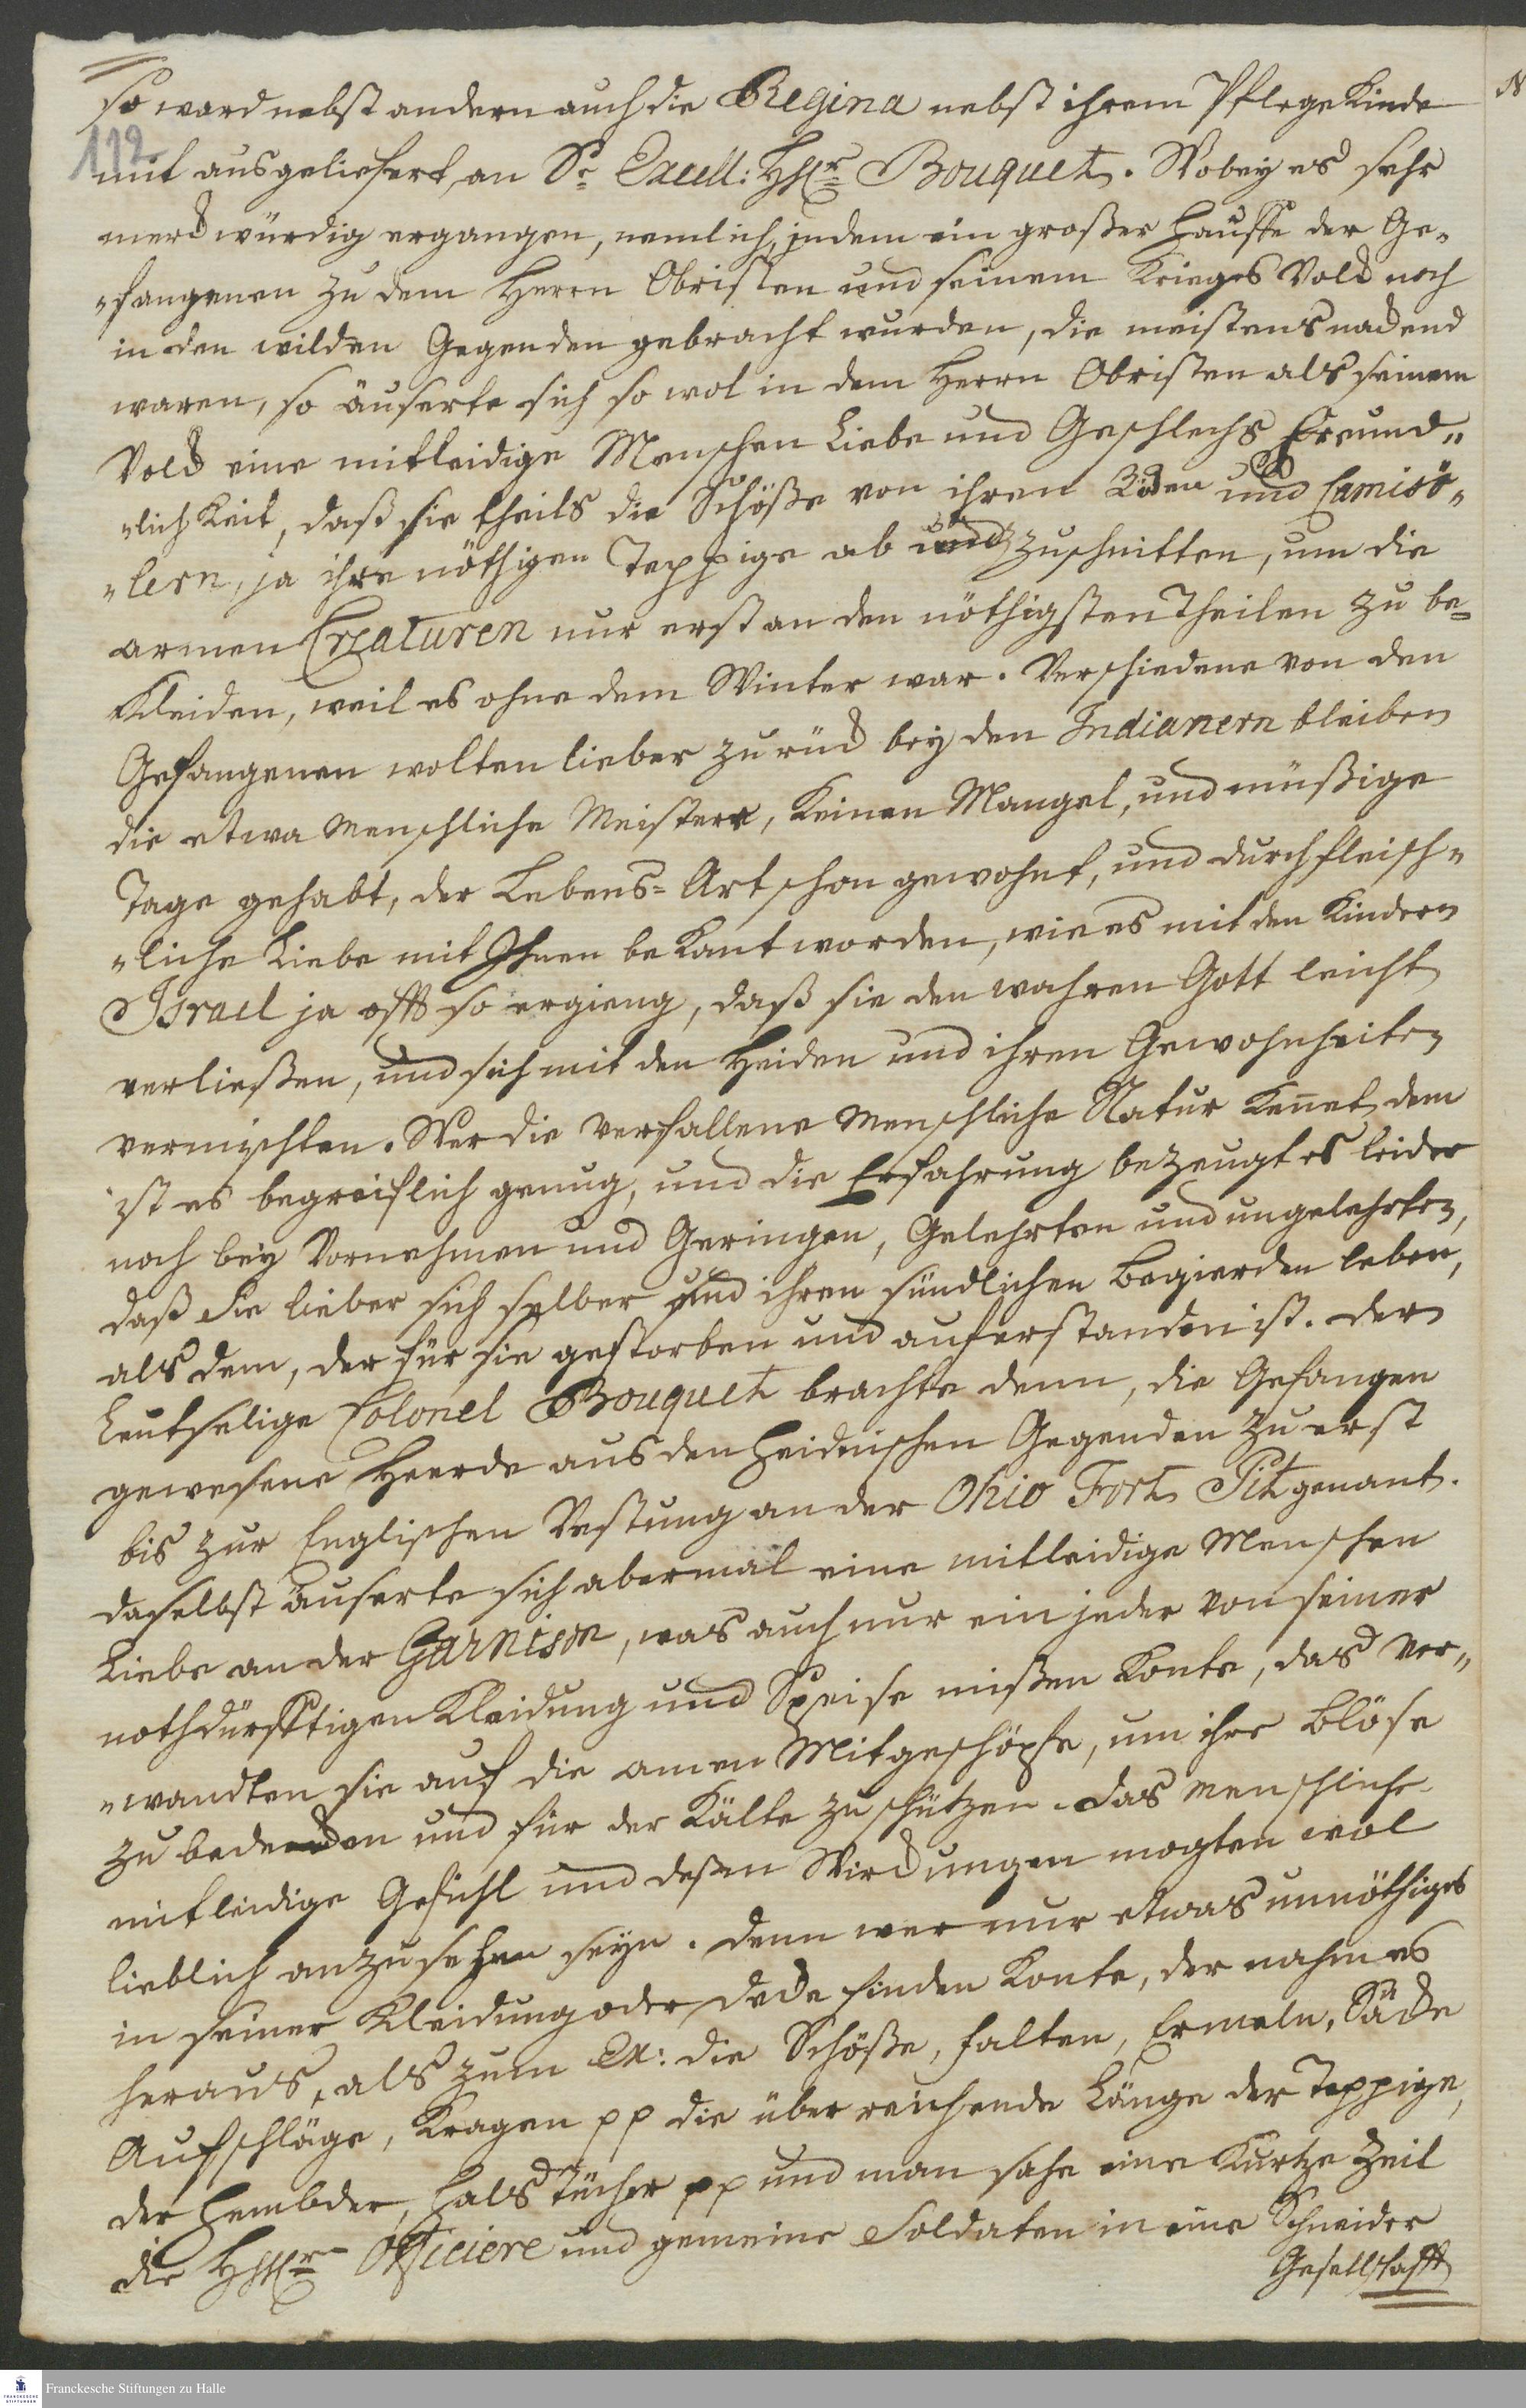 so ward nebst andern auch die Regina nebst ihrem Pflege Kinde
112
mit ausgeliefert, an Sr Excell: HEr Bouquet. Wobey es sehr
merckwürdig ergangen, nemlich, indem ein großer Hauffe der Ge„
„fangenen zu dem Herrn Obristen und seinem Krieges Volck noch
in den wilden Gegenden gebracht wurden, die meistens nackend
waren, so äuserte sich so wol in dem Herrn Obristen als seinem
Volck eine mitleidige Menschen Liebe und Geschlechs Freund„
„lichkeit, daß sie theils die Schöße von ihren Röcken und Camisö„
„lern, ja ihre nöthigen Teppige ab und zuschnitten, um die
armen Creaturen nur erst an den nöthigsten Theilen zu be=
Kleiden, weil es ohne dem Winter war. Verschiedene von den
Gefangenen wolten lieber zurück bey den Indianern bleiben
die etwa Menschliche Meistere, Keinen Mangel, und müßige
Tage gehabt, der Lebens=Art schon gewohnt, und durch fleisch„
„liche Liebe mit Ihnen beKant worden, wie es mit den Kindern
Israel ja offt so ergieng, daß sie den wahren Gott leicht
verließen, und sich mit den Heiden und ihren Gewohnheiten
vermischten. Wer die Verfallene Menschliche Natur Kennet, dem
ist es begreiflich genug, und die Erfahrung bezeugt es leider
noch bey Vornehmen und Geringen, Gelehrten und ungelehrten,
daß sie lieber sich selber und ihren sündlichen Begierden leben,
als dem, der für sie gestorben und auferstanden ist. Der
Leutselige Colonel Bouquet brachte denn, die Gefangen
gewesene Heerde aus den Heidnischen Gegenden zu erst
bis zur Englischen Vestung an der Ohio Fort Pit genant.
daselbst äuserte sich abermal eine mitleidige Menschen
Liebe an der Garnison, was auch nur ein jeder von seiner
nothdürfftigen Kleidung und Speise mißen Konte, das ver„
„wandten sie auf die armen Mitgeschöpfe, um ihre Blöse
zu bedecken und für der Kälte zu schützen. Das menschliche
mitleidige Gefühl und deßen Wirckungen mogten wol
lieblich anzusehen seyn. Denn wer nur etwas unnöthiges
in seiner Kleidung oder Decke finden Konte, der nahm es
heraus, als zum Ex: die Schöße, Falten, Ermeln, Säcke
Aufschläge, Kragen pp die über reichende Länge der Teppige,
der Hembder, Hals Tücher pp und man sahe eine Kurtze Zeit
die HEr Officiere und gemeine Soldaten in eine Schneider
Gesellschafft
Franckesche Stiftungen zu Halle